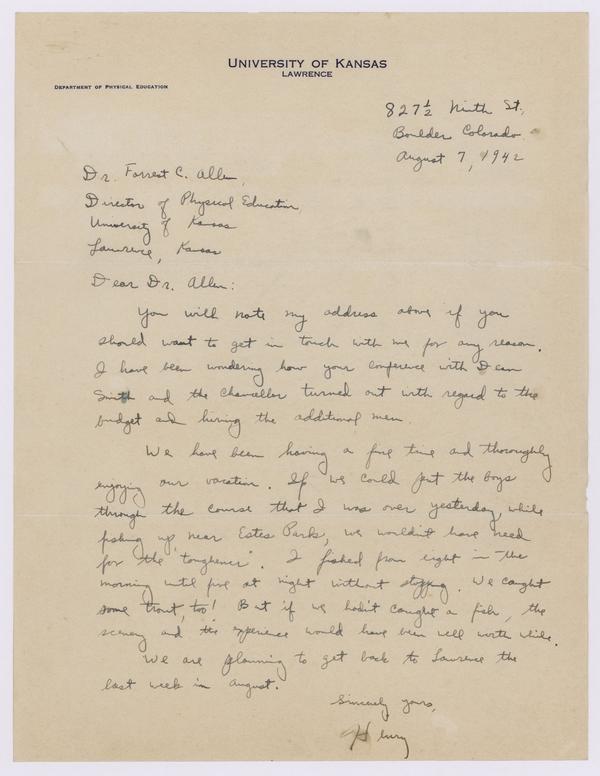 UNIVERSITY OF KANSAS
LAWRENCE
DEPARTMENT OF PHYSICAL EDUCATION
827½ Ninth St.,
Boulder Colorado
August 7, 1942
Dr. Forrest C. Allen,
Director of Physical Education,
University of Kansas
Lawrence, Kansas
Dear Dr. Allen:
You will note my address above if you
should want to get in touch with me for any reason.
I have been wondering how your conference with Dean
Smith and the chancellor turned out with regard to the
budget and hiring the additional men.
We have been having a fine time and thoroughly
enjoying our vacation. If we could put the boys
through the course that I was over yesterday, while
fishing up near Estes Park, we wouldn't have need
for the "toughener". I fished from eight in the
morning until five at night without stopping. We caught
some trout, too! But if we hadn't caught a fish, the
scenery and the experience would have been well worth while.
We are planning to get back to Lawrence the
last week in August.
Sincerely yours,
Henry